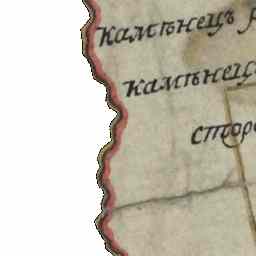 Камѣнецъ
камѣнецъ
сторо